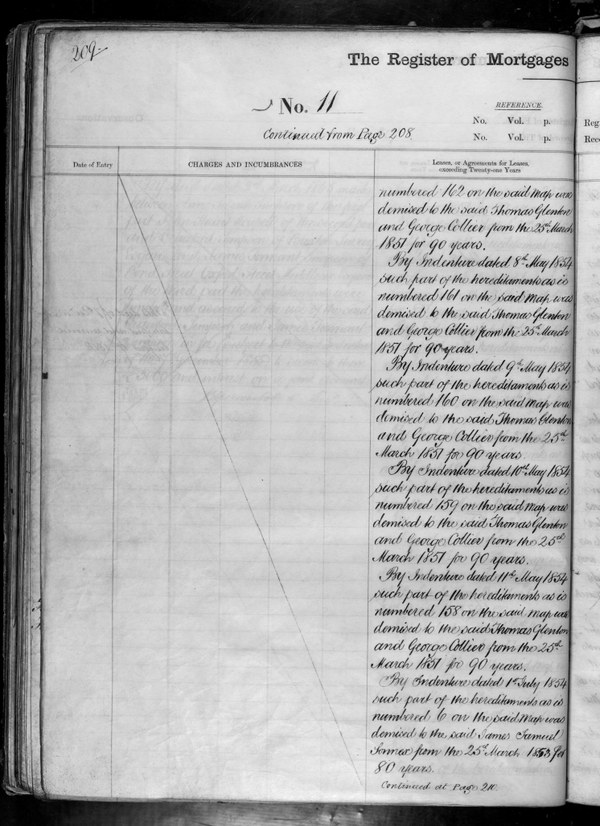 209
The Register of Mortgages
No. 11
REFERENCE.
Continued from Page 208
No. Vol. p.
No. Vol. p.
Reg
Rece
Date of Entry
CHARGES AND INCUMBRANCES
Leases, or Agreements for Leases, exceeding Twenty-one Years
numbered 162 on the said map was
demised to the said Thomas Glenton
and George Collier from the 25th March
1851 for 90 years.
By Indenture dated 8th May 1854
such part of the hereditaments as is
numbered 161 on the said map was
demised to the said Thomas Glenton
and George Collier from the 25th March
1851 for 90 years.
By Indenture dated 9th May 1854
such part of the hereditaments as is
numbered 160 on the said map was
demised to the said Thomas Glenton
and George Collier from the 25th
March 1851 for 90 years
By Indenture dated 10th May 1854
such part of the hereditaments as is
numbered 159 on the said map was
demised to the said Thomas Glenton
and George Collier from the 25th
March 1851 for 90 years.
By Indenture dated 11th May 1854
such part of the hereditaments as is
numbered 158 on the said map was
demised to the said Thomas Glenton
and George Collier from the 25th
March 1851 for 90 years.
By Indenture dated 1st July 1854
such part of the hereditaments as is
numbered 6 on the said map was
demised to the said James Samuel
from the 25th March 1853 for
80 years.
Continued at Page 210